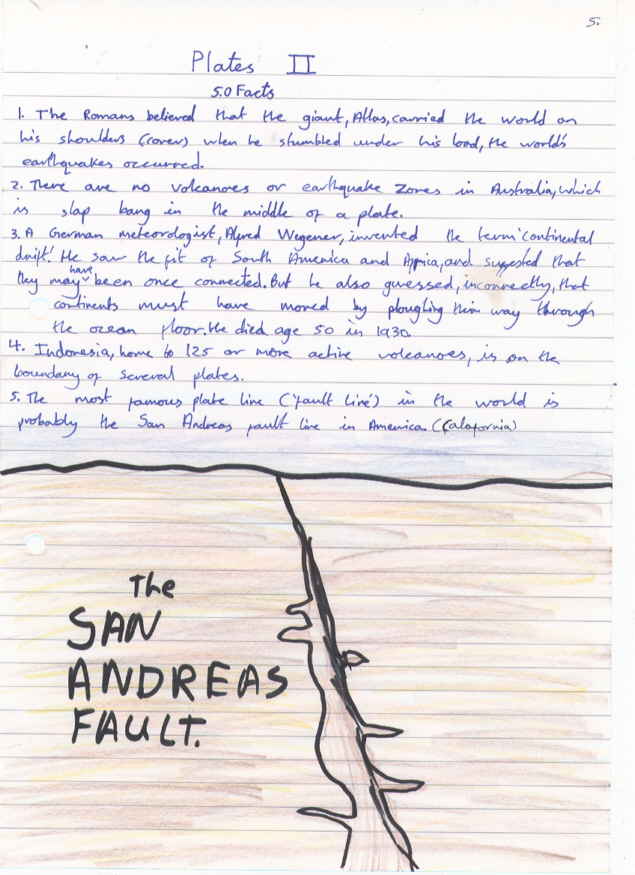 5.
Plates II
5.0 Facts
1. The Romans believed that the giant, Atlas, carried the world on
his shoulders (cover) when he stumbled under his load, the world's
earthquakes occurred.
2. There are no volcanoes or earthquake zones in Australia, which
is slap bang in the middle of a plate.
3. A German meteorologist, Alfred Wegener, invented the term 'continental
drift'. He saw the fit of South America and Africa, and suggested that
they may have been once connected. But he also guessed, inconnectly, that
continents must have moved by ploughing their way through
the ocean floor. He died age 50 in 1930.
4. Indonesia, home to 125 or more active volcanoes, is on the
boundary of several plates.
5. The most famous plate line ('fault line') in the world is
probably the San Andreas fault line in America. (Calafornia)
The
SAN
ANDREAS
FAULT.